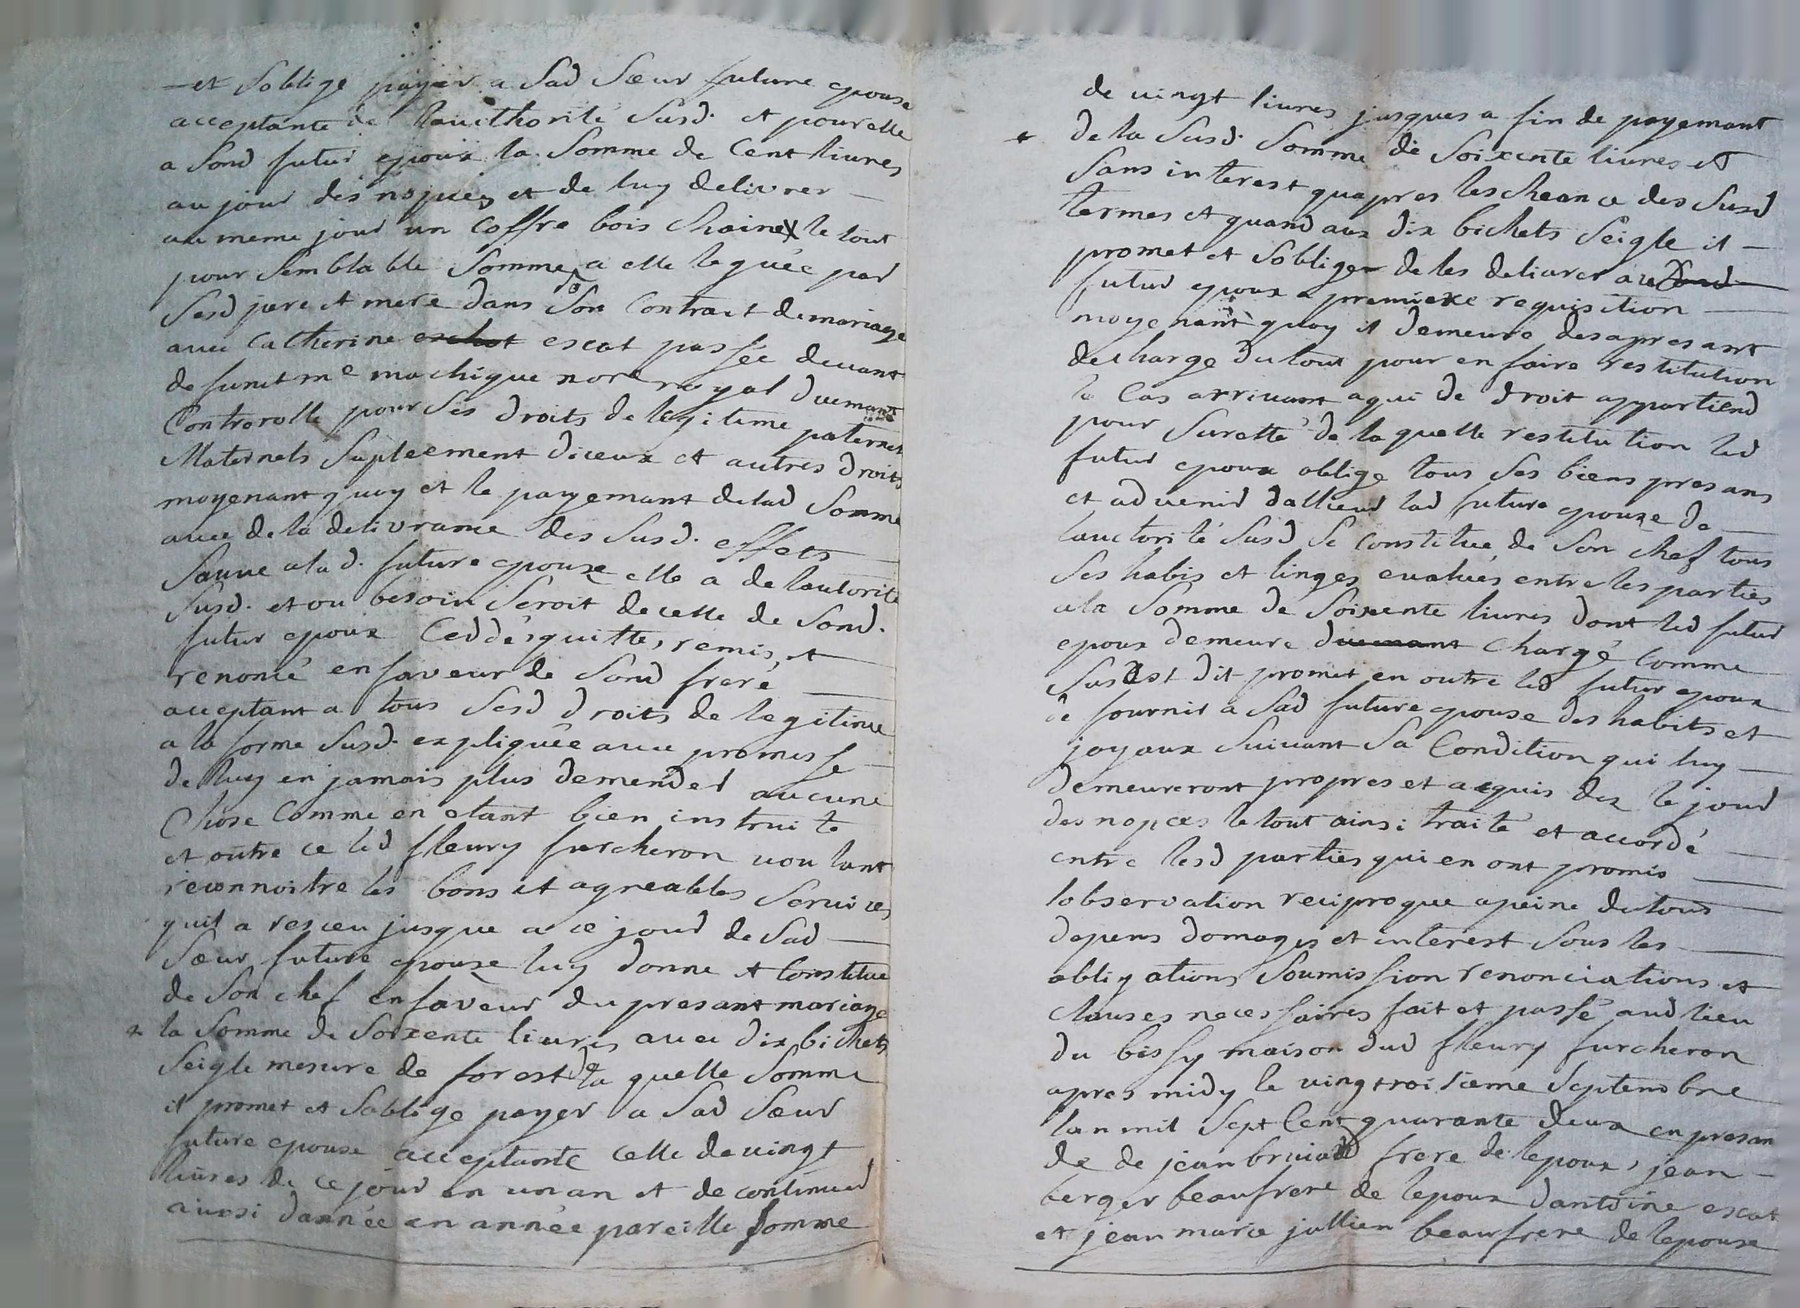 et soblige payer a sad sœur future epouse
acceptante de lauthorité susd. et pour elle
a sond futur epoux la somme de Cent livres
au jour des nopces et de luy delivrer
au meme jour un Coffre bois Chaine le tout
pour semblable somme a elle leguée par
sesd pere et mere dans son Contract demariage
avec Catherine escot passée devant
de funct me machique nore royal duemant
Controrollé pour ses droits de legitime paternels
Maternels supleement diceux et autres droits
moyenant quoy et le payemant delad somme
avec de la delivrance des susd. effets
sauve a lad. future epouze elle a de lautorité
susd. et ou besoin seroit de celle de sond.
futur epoux Ceddés quittes remis et
renoncé en faveur de sond frere
acceptant a tous sesd droits de legitime
a la forme susd. expliquée avec promesse
de luy en jamais plus demender aucune
Chose Comme en etant bien instruite
et outre ce led fleury furcheron voulant
reconnoitre les bons et agreables services
quil a resceu jusque a ce jour de sad
sœur future epouze luy donne et Constitue
de son chef en faveur du presant mariage
la somme de soixente livres avec dix bichets
seigle mesure de forest la quelle somme
il promet et soblige payer a sad sœur
future epouse acceptante celle de vingt
livres de ce jour en un an et de continuer
ainsi dannée en année pareille somme
de vingt livres jusques a fin de payemant
de la susd. somme de soixente livres et
sans interest quapres lescheance des susd
termes et quand aux dix bichets seigle il
promet et soblige de les delivrer au
futur epoux a premiere requisition
moyenant quoy il demeure desapresant
decharge du tout pour en faire restitution
le Cas arrivant a qui de droit appartiend
pour suretté de la quelle restitution led
futur epoux oblige tous ses biens presans
et advenir dallieur lad future epouze de
lauctorité susd se constitue de son chef tous
ses habis et linges evalués entre les parties
a la somme de soixente livres dont led futur
epoux demeure duemant Chargé Comme
sus est dit promet en outre led futur epoux
de fournir a sad future epouse des habits et
joyaux suivant sa Condition qui luy
demeureront propres et acquis dez le jour
des nopces le tout ainsi traité et accordé
entre lesd parties qui en ont promis
lobservation reciproque a peine de tous
depens domages et interest sous les
obligations soumission renonciations et
clauses necessaires fait et passé aud lieu
du bissy maison dud fleury furcheron
apres midy le vingtroisieme septembre
lan mil sept Cent quarante deux en presan
de de jean frere de lepoux, jean
berger beaufrere de lepoux dantoine escot
et jean marie jullien beaufrere de lepouze